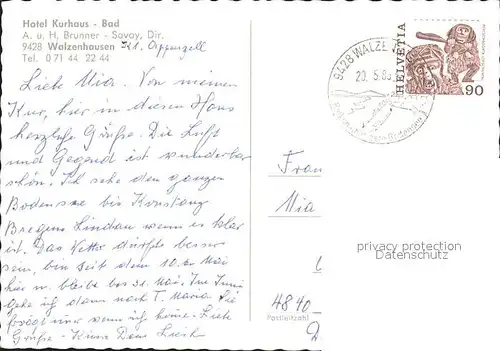 Hotel Kurhaus - Bad
A. u. H. Brunner - Savoy, Dir.
9428 Walzenhausen Kt. Appenzell
Tel. 0 71 44 22 44
Liebe Mia. Von meinen
Kur, hier in diesen Haus
herzliche Grüße. Die Luft
und Gegend ist wunderbar
schön. Ich sehe den ganzen
Bodensee bis Konstanz
Bregenz Lindau wenn es klar
ist. Das Wetter dürfte besser
sein, bin seit dem 10. Mai
hier u. bleibe bis 31. Mai. Im Juni
gehe ich dann nach T. Maria. Sie
frägt mir wenn ich keine. Liebe
Grüße -
9428 WALZE
20. 5. 8
HELVETIA
90
Frau
Mia
privacy protection
Datenschutz
4840
Postleitzahl